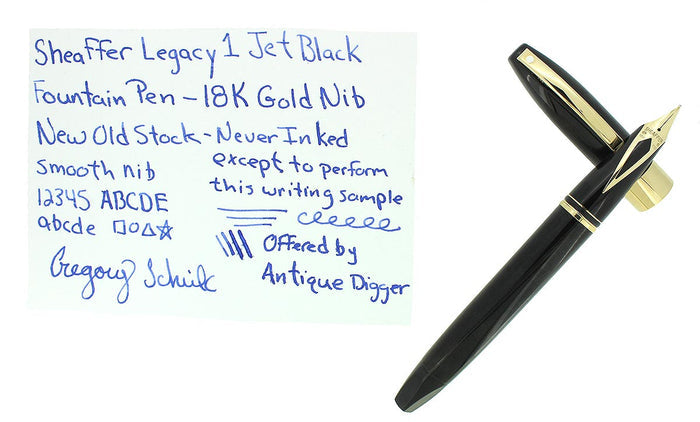 Sheaffer Legacy 1 Jet Black
Fountain Pen - 18K Gold Nib
New Old Stock - Never Inked
except to perform
this writing sample
smooth nib
12345 ABCDE
abcde
Offered by
Antique Digger
Gregory